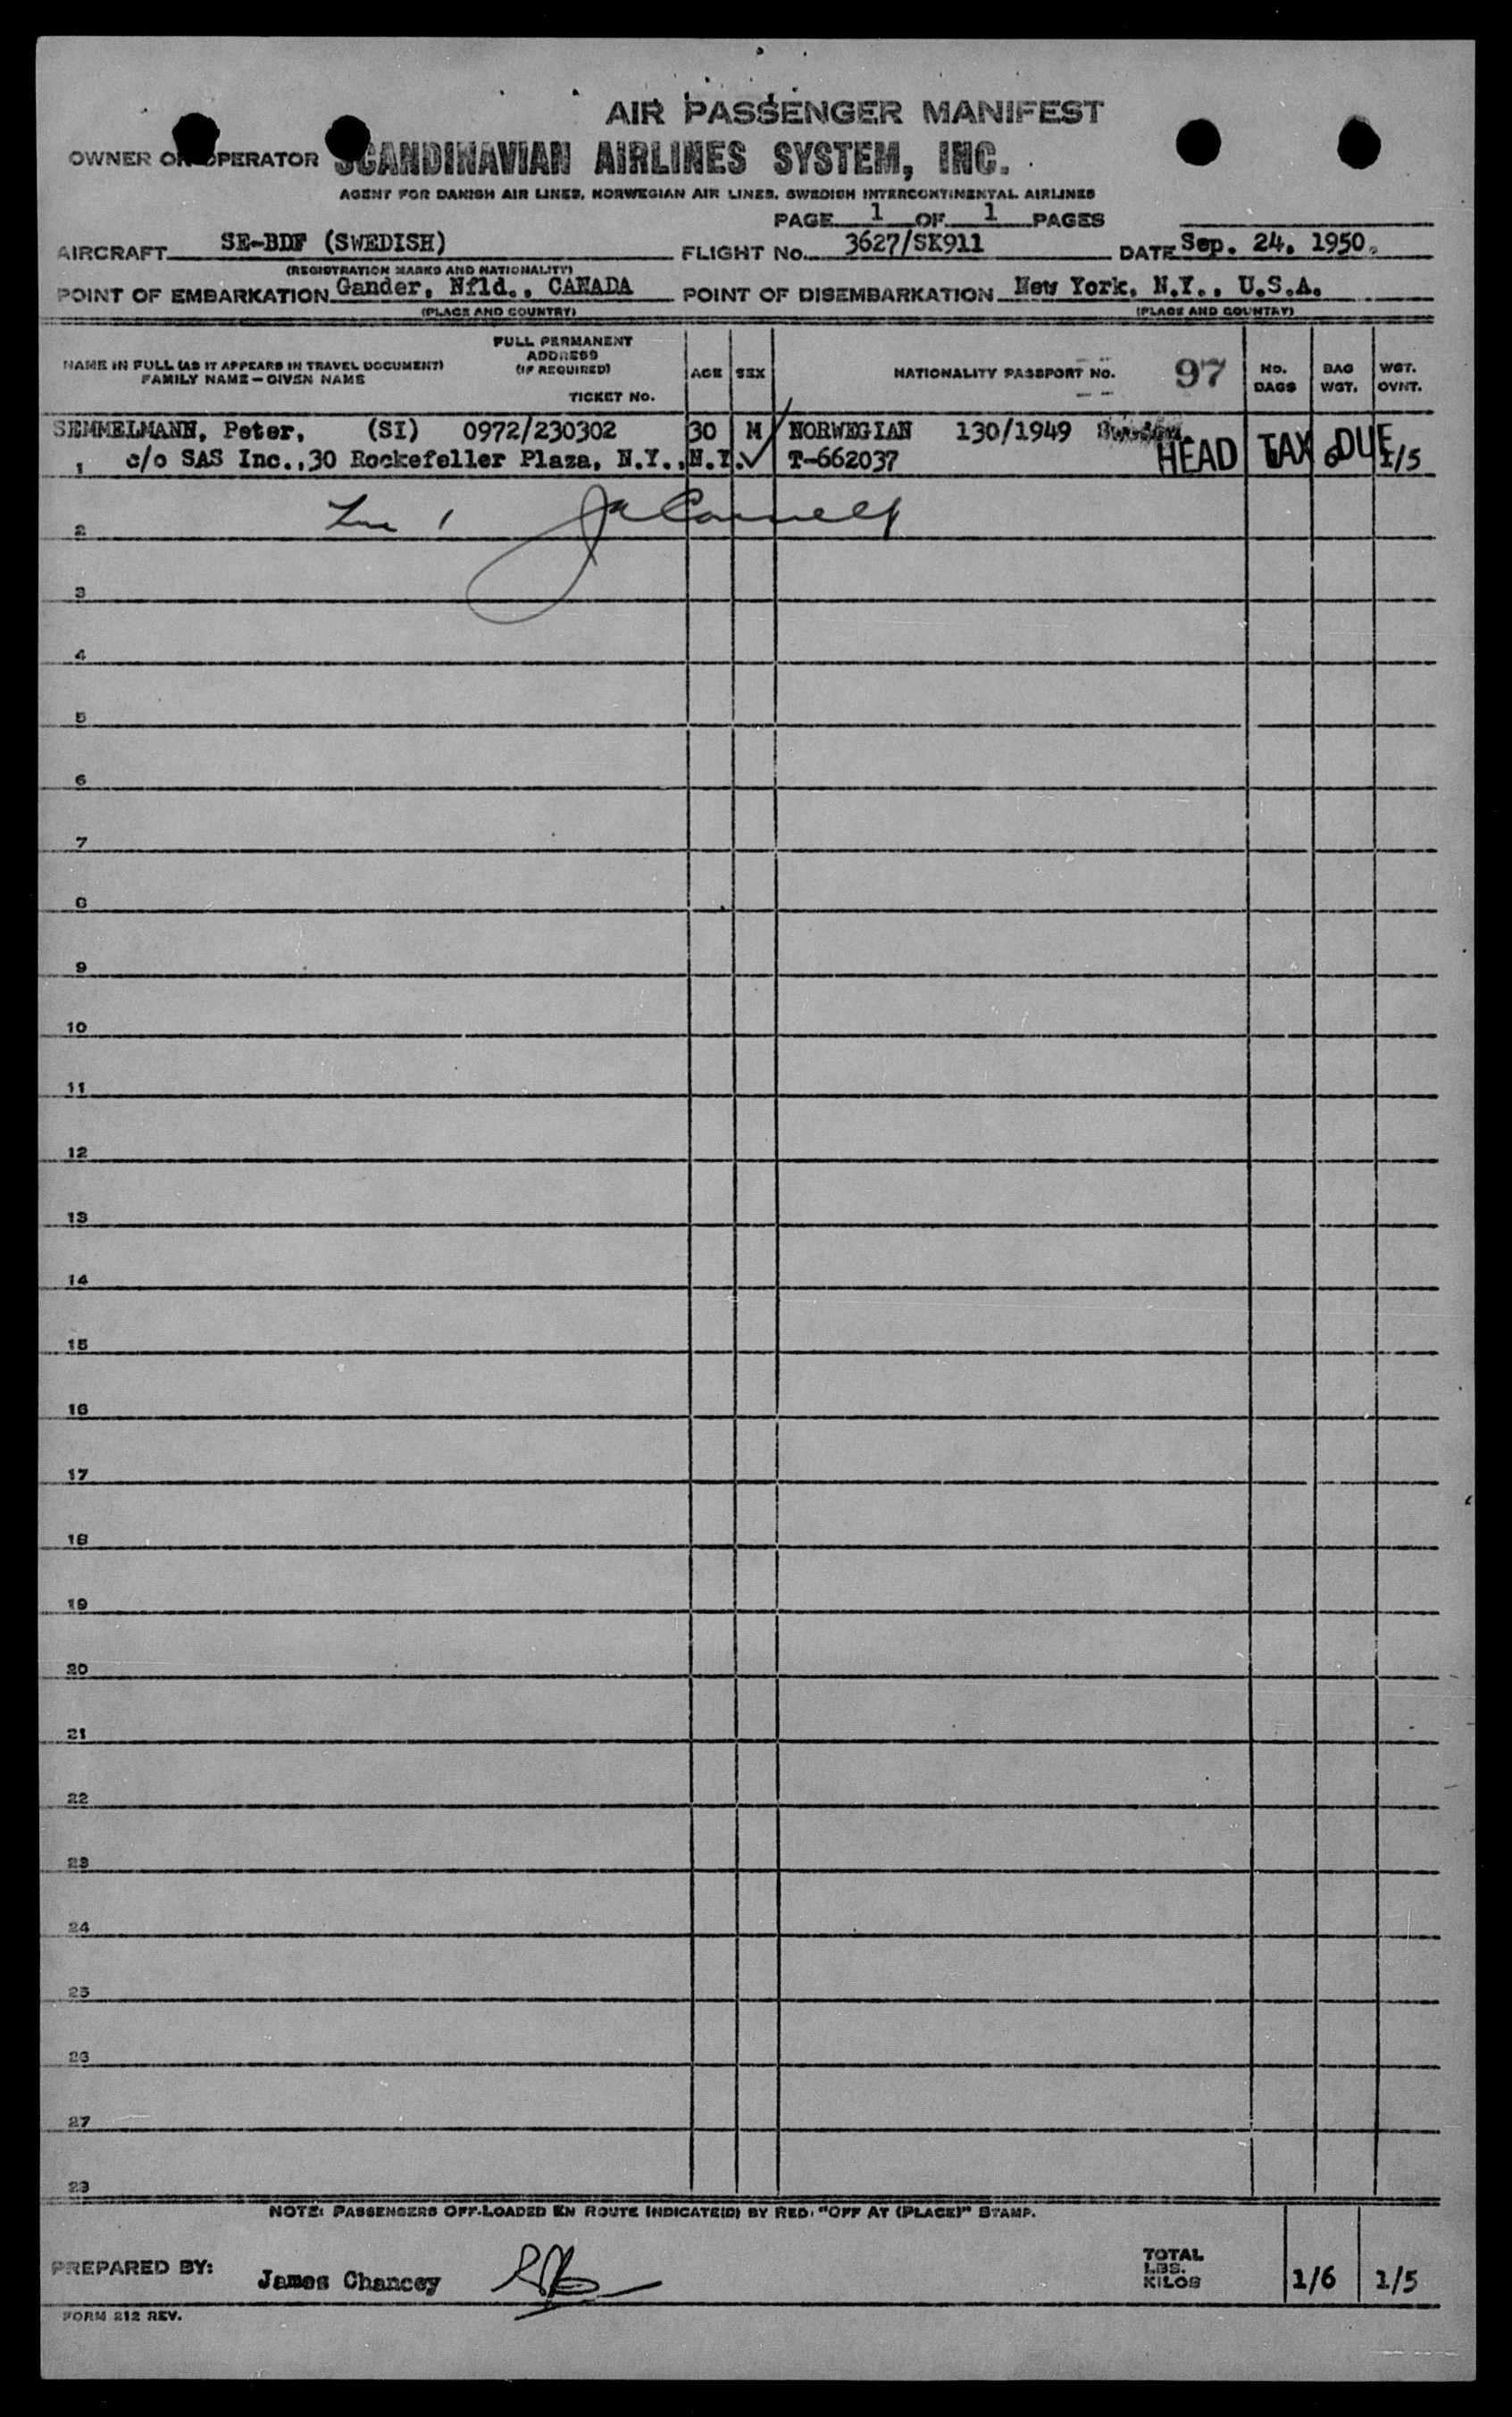 AIR PASSENGER MANIFEST
OWNER OR OPERATOR SCANDINAVIAN AIRLINES SYSTEM, INC.
AGENT FOR DANISH AIR LINES, NORWEGIAN AIR LINES, SWEDISH INTERCONTINENTAL AIRLINES
PAGE 1 OF 1 PAGES
AIRCRAFT SE-BDF (SWEDISH) FLIGHT No. 3627/SK911 DATE Sep. 24, 1950.
(REGISTRATION MARKS AND NATIONALITY)
POINT OF EMBARKATION Gander, Nfld., CANADA POINT OF DISEMBARKATION New York, N.Y., U.S.A.
(PLACE AND COUNTRY) (PLACE AND COUNTRY)
NAME IN FULL (AS IT APPEARS IN TRAVEL DOCUMENT)
FAMILY NAME - GIVEN NAME
FULL PERMANENT
ADDRESS
(IF REQUIRED)
TICKET NO.
AGE SEX NATIONALITY PASSPORT NO. 97
NO. BAGS
BAG WGT.
WGT. OVNT.
SEMMELMANN, Peter, (SI) 0972/230302 30 M NORWEGIAN 130/1949
1 c/o SAS Inc.,30 Rockefeller Plaza, N.Y.,N.Y. T-662037 HEAD TAX DUE 1/5
2
3
4
5
6
7
8
9
10
11
12
13
14
15
16
17
18
19
20
21
22
23
24
25
26
27
28
NOTE: PASSENGERS OFF-LOADED EN ROUTE INDICATE(D) BY RED, "OFF AT (PLACE)" STAMP.
PREPARED BY: James Chancey
TOTAL
LBS.
KILOS
1/6 1/5
FORM 212 REV.